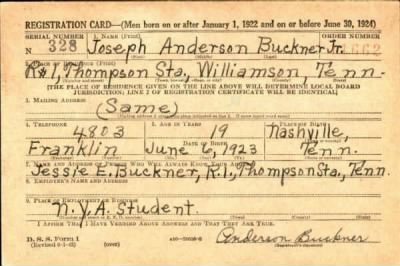 REGISTRATION CARD—(Men born on or after January 1, 1922 and on or before June 30, 1924)
SERIAL NUMBER 1. NAME (Print) ORDER NUMBER
N 328 Joseph Anderson Buckner Jr. 11662
R#1, Thompson Sta, Williamson, Tenn.
[THE PLACE OF RESIDENCE GIVEN ON THE LINE ABOVE WILL DETERMINE LOCAL BOARD
JURISDICTION; LINE 2 OF REGISTRATION CERTIFICATE WILL BE IDENTICAL]
3. MAILING ADDRESS
(Same)
4. TELEPHONE 5. AGE IN YEARS 6. PLACE OF BIRTH
4803 19 Nashville,
DATE OF BIRTH
Franklin June 6, 1923 Tenn.
7. NAME AND ADDRESS OF PERSON WHO WILL ALWAYS KNOW YOUR ADDRESS
Jessie E. Buckner, R.1, Thompson Sta, Tenn.
8. EMPLOYER'S NAME AND ADDRESS
N.Y.A. Student.
I AFFIRM THAT I HAVE VERIFIED ABOVE ANSWERS AND THAT THEY ARE TRUE.
D. S. S. Form 1
Anderson Buckner